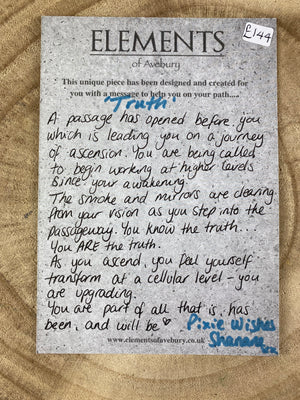 £144
ELEMENTS
of Avebury
This unique piece has been designed and created for
you with a message to help you on your path.....
'Truth'
A passage has opened before you
which is leading you on a journey
of ascension. You are being called
to begin working at higher levels
since your awakening.
The smoke and mirrors are clearing
from your vision as you step into the
passageway. You know the truth...
You ARE the truth.
As you ascend, you feel yourself
transform at a cellular level - you
are upgrading.
You are part of all that is, has
been, and will be ♡ Pixie Wishes
www.elementsofavebury.co.uk